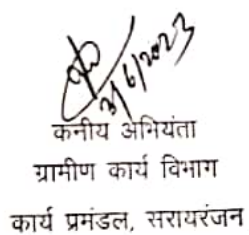 कनीय अभियंता
ग्रामीण कार्य विभाग
कार्य प्रमंडल, सरायरंजन